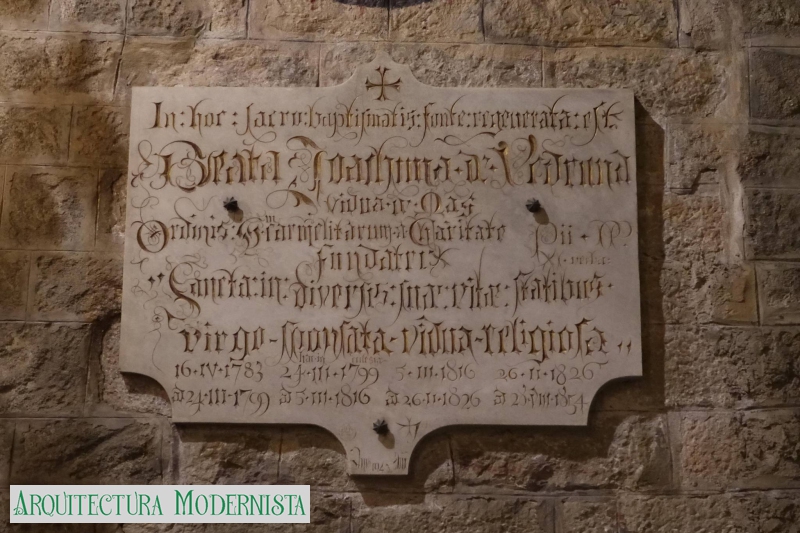 In : hoc : sacro : baptismatis : fonte : regenerata : est
Beata Joachima de Vedruna
Vidua de Mas
Ordinis : Carmelitarum a Charitate
fundatrix
"Sancta in diversis suæ vitæ statibus
virgo - sponsata - vidua - religiosa"
16·IV·1783 24·III·1799 5·III·1816 26·II·1826
ad 24·III·1799 ad 5·III·1816 ad 26·II·1826 ad
Arquitectura Modernista